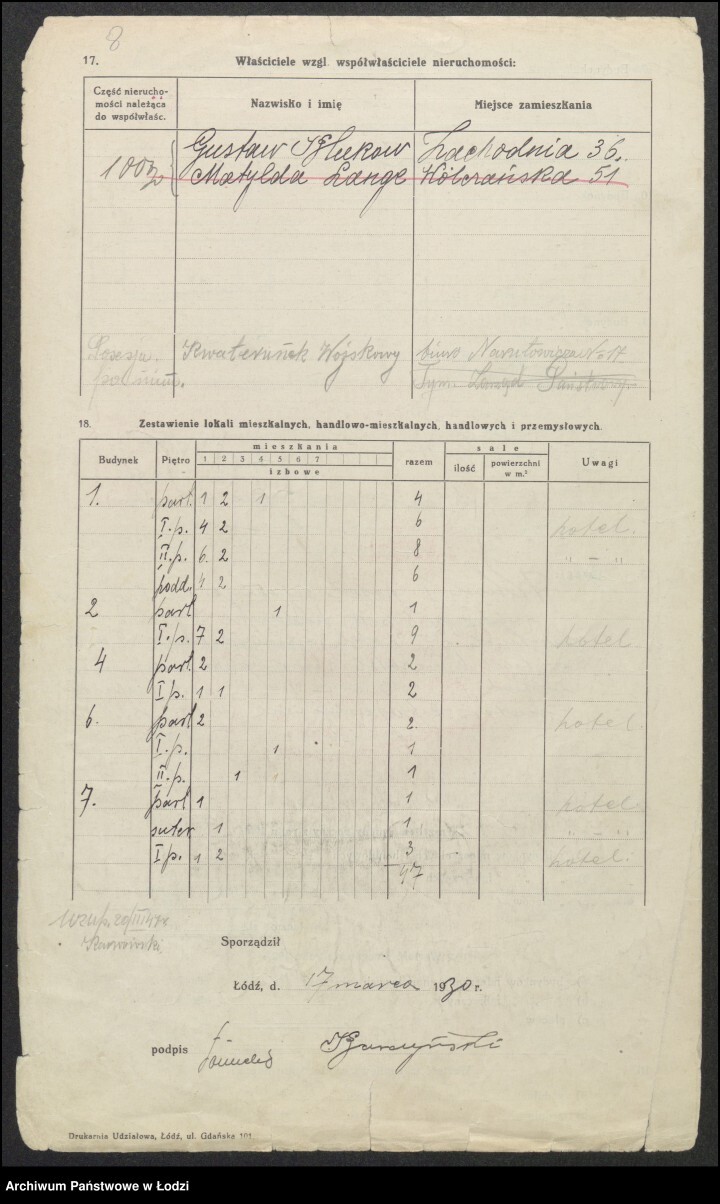 8
17. Właściciele wzgl. współwłaściciele nieruchomości:
Część nierucho-
mości należąca
do współwłaśc.
Nazwisko i imię
Miejsce zamieszkania
100% Gustaw Zachodnia 36.
Matylda Lange Wólczańska 51
Posesja Kwaterunek Wojskowy biuro Narutowicza No 17
Tym. Zarząd Państwowy
18. Zestawienie lokali mieszkalnych, handlowo-mieszkalnych, handlowych i przemysłowych.
Budynek Piętro mieszkania razem sale Uwagi
1 2 3 4 5 6 7
izbowe
ilość powierzchni
w m.²
1. part. 1 2 1 4
I.p. 4 2 6 hotel.
II.p. 6. 2 8 „ — „
podd. 4 2 6
2 part 1 1
I.p. 7 2 9 hotel
4 part. 2 2
I p. 1 1 2
6. part 2 2. hotel.
I.p. 1 1
II.p. 1 1
7. part 1 1 hotel
suter. 1 1 „ — „
I p. 1 2 3 hotel.
47
Sporządził
Łódź, d. 17 marca 1930 r.
podpis
Drukarnia Udziałowa, Łódź, ul. Gdańska 101
Archiwum Państwowe w Łodzi